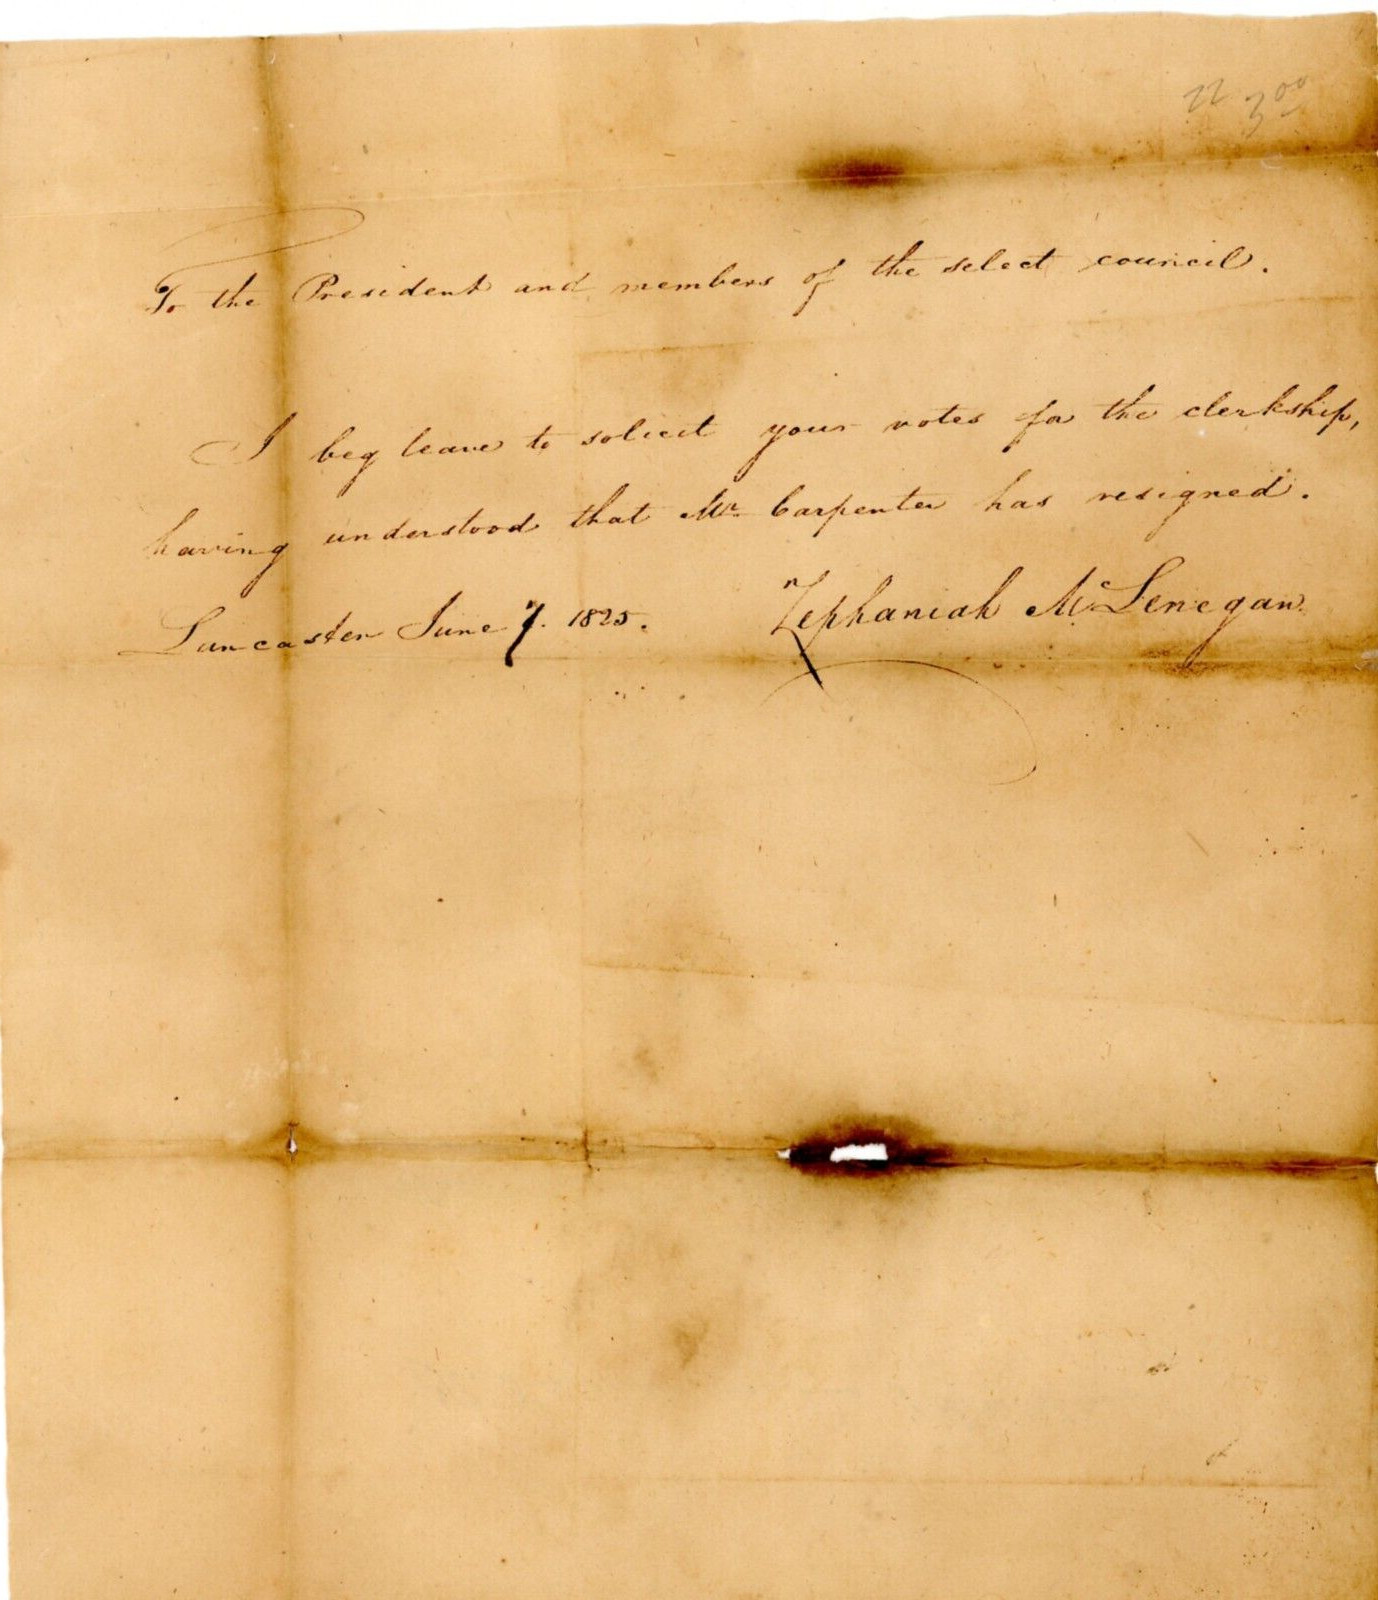 22 3 00
To the President and members of the select council.
I beg leave to solicit your votes for the clerkship,
having understood that Mr. Carpenter has resigned.
Lancaster June 7. 1825. Zephaniah McLenegan